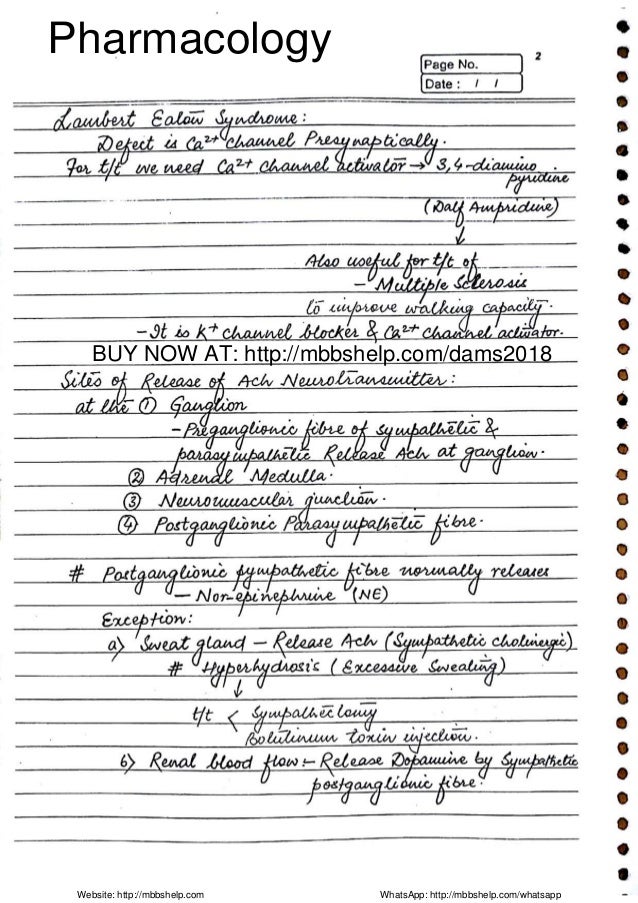 Pharmacology
Page No.
2
Date : / /
Lambert Ealon Syndrome :
Defect is Ca2+ channel Presynaptically.
For t/t we need Ca2+ channel activator → 3,4-diamino
pyridine
(Dalf Ampridine)
↓
Also useful for t/t of
- Multiple Sclerosis
to improve walking capacity.
- It is K+ channel blocker & Ca2+ channel activator.
BUY NOW AT: http://mbbshelp.com/dams2018
Sites of Release of Ach Neurotransmitter :
at the ① Ganglion
- Preganglionic fibre of sympathetic &
parasympathetic Release Ach at ganglion.
② Adrenal Medulla.
③ Neuromuscular junction.
④ Postganglionic Parasympathetic fibre.
# Postganglionic sympathetic fibre normally releases
- Nor-epinephrine (NE)
Exception:
a) Sweat gland - Release Ach (Sympathetic cholinergic)
# Hyperhydrosis (Excessive Sweating)
↓
t/t < Sympathectomy
Bolutinum toxin injection.
b) Renal blood flow :- Release Dopamine by Sympathetic
postganglionic fibre.
Website: http://mbbshelp.com
WhatsApp: http://mbbshelp.com/whatsapp